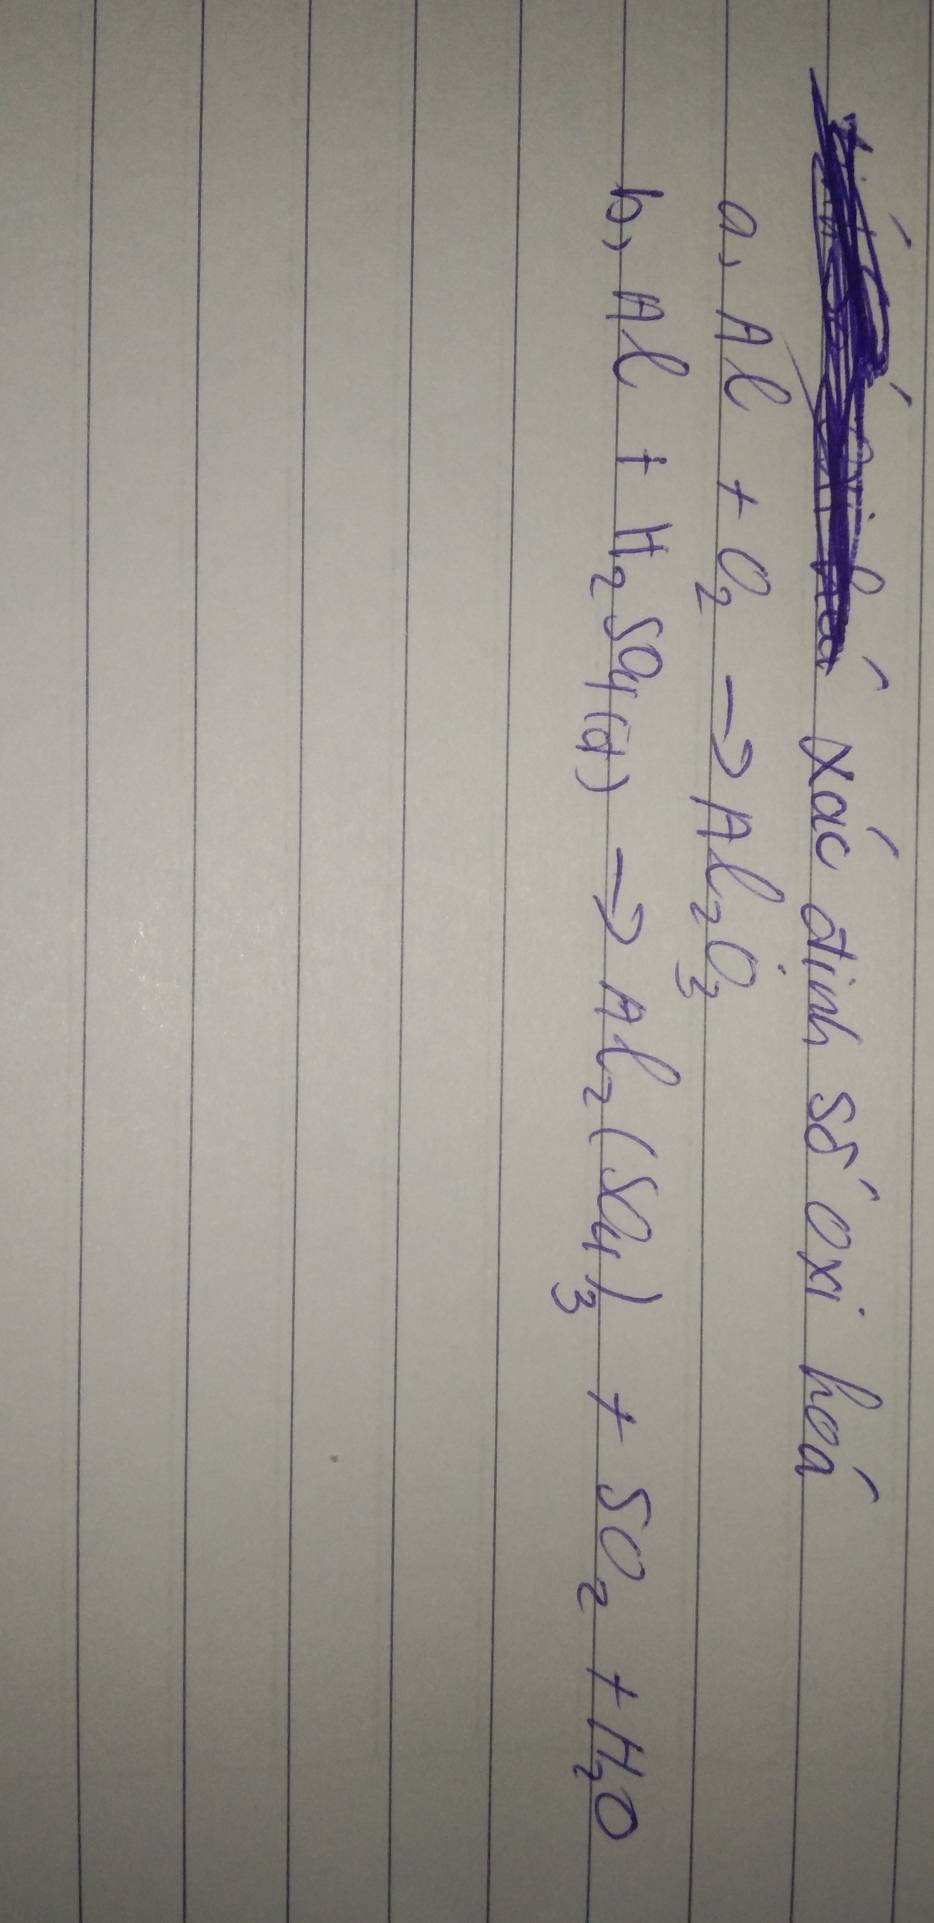 xác định số oxi hoá
a, Al + O₂ → Al₂O₃
b, Al + H₂SO₄(đ) → Al₂(SO₄)₃ + SO₂ + H₂O